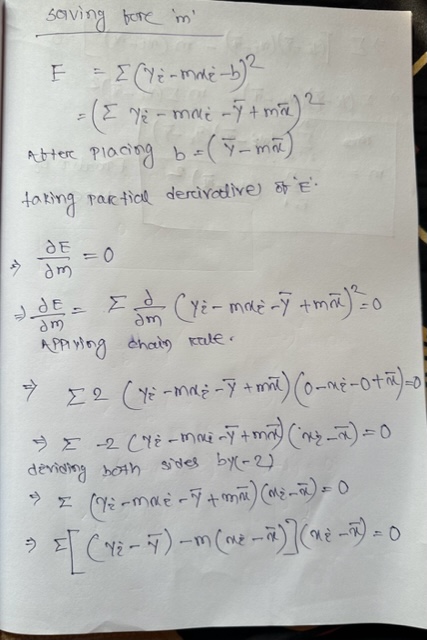 solving fore 'm'
E = Σ(yi - mxi - b)²
= (Σ yi - mxi - ȳ + mx̄)²
After placing b = (ȳ - mx̄)
taking partial derivative) of 'E'.
⇒ ∂E/∂m = 0
⇒ ∂E/∂m = Σ ∂/∂m (yi - mxi - ȳ + mx̄)² = 0
Applying chain rule.
⇒ Σ 2 (yi - mxi - ȳ + mx̄)(0 - xi - 0 + x̄) = 0
⇒ Σ -2 (yi - mxi - ȳ + mx̄)(xi - x̄) = 0
deviding both sides by(-2)
⇒ Σ (yi - mxi - ȳ + mx̄)(xi - x̄) = 0
⇒ Σ[(yi - ȳ) - m(xi - x̄)](xi - x̄) = 0